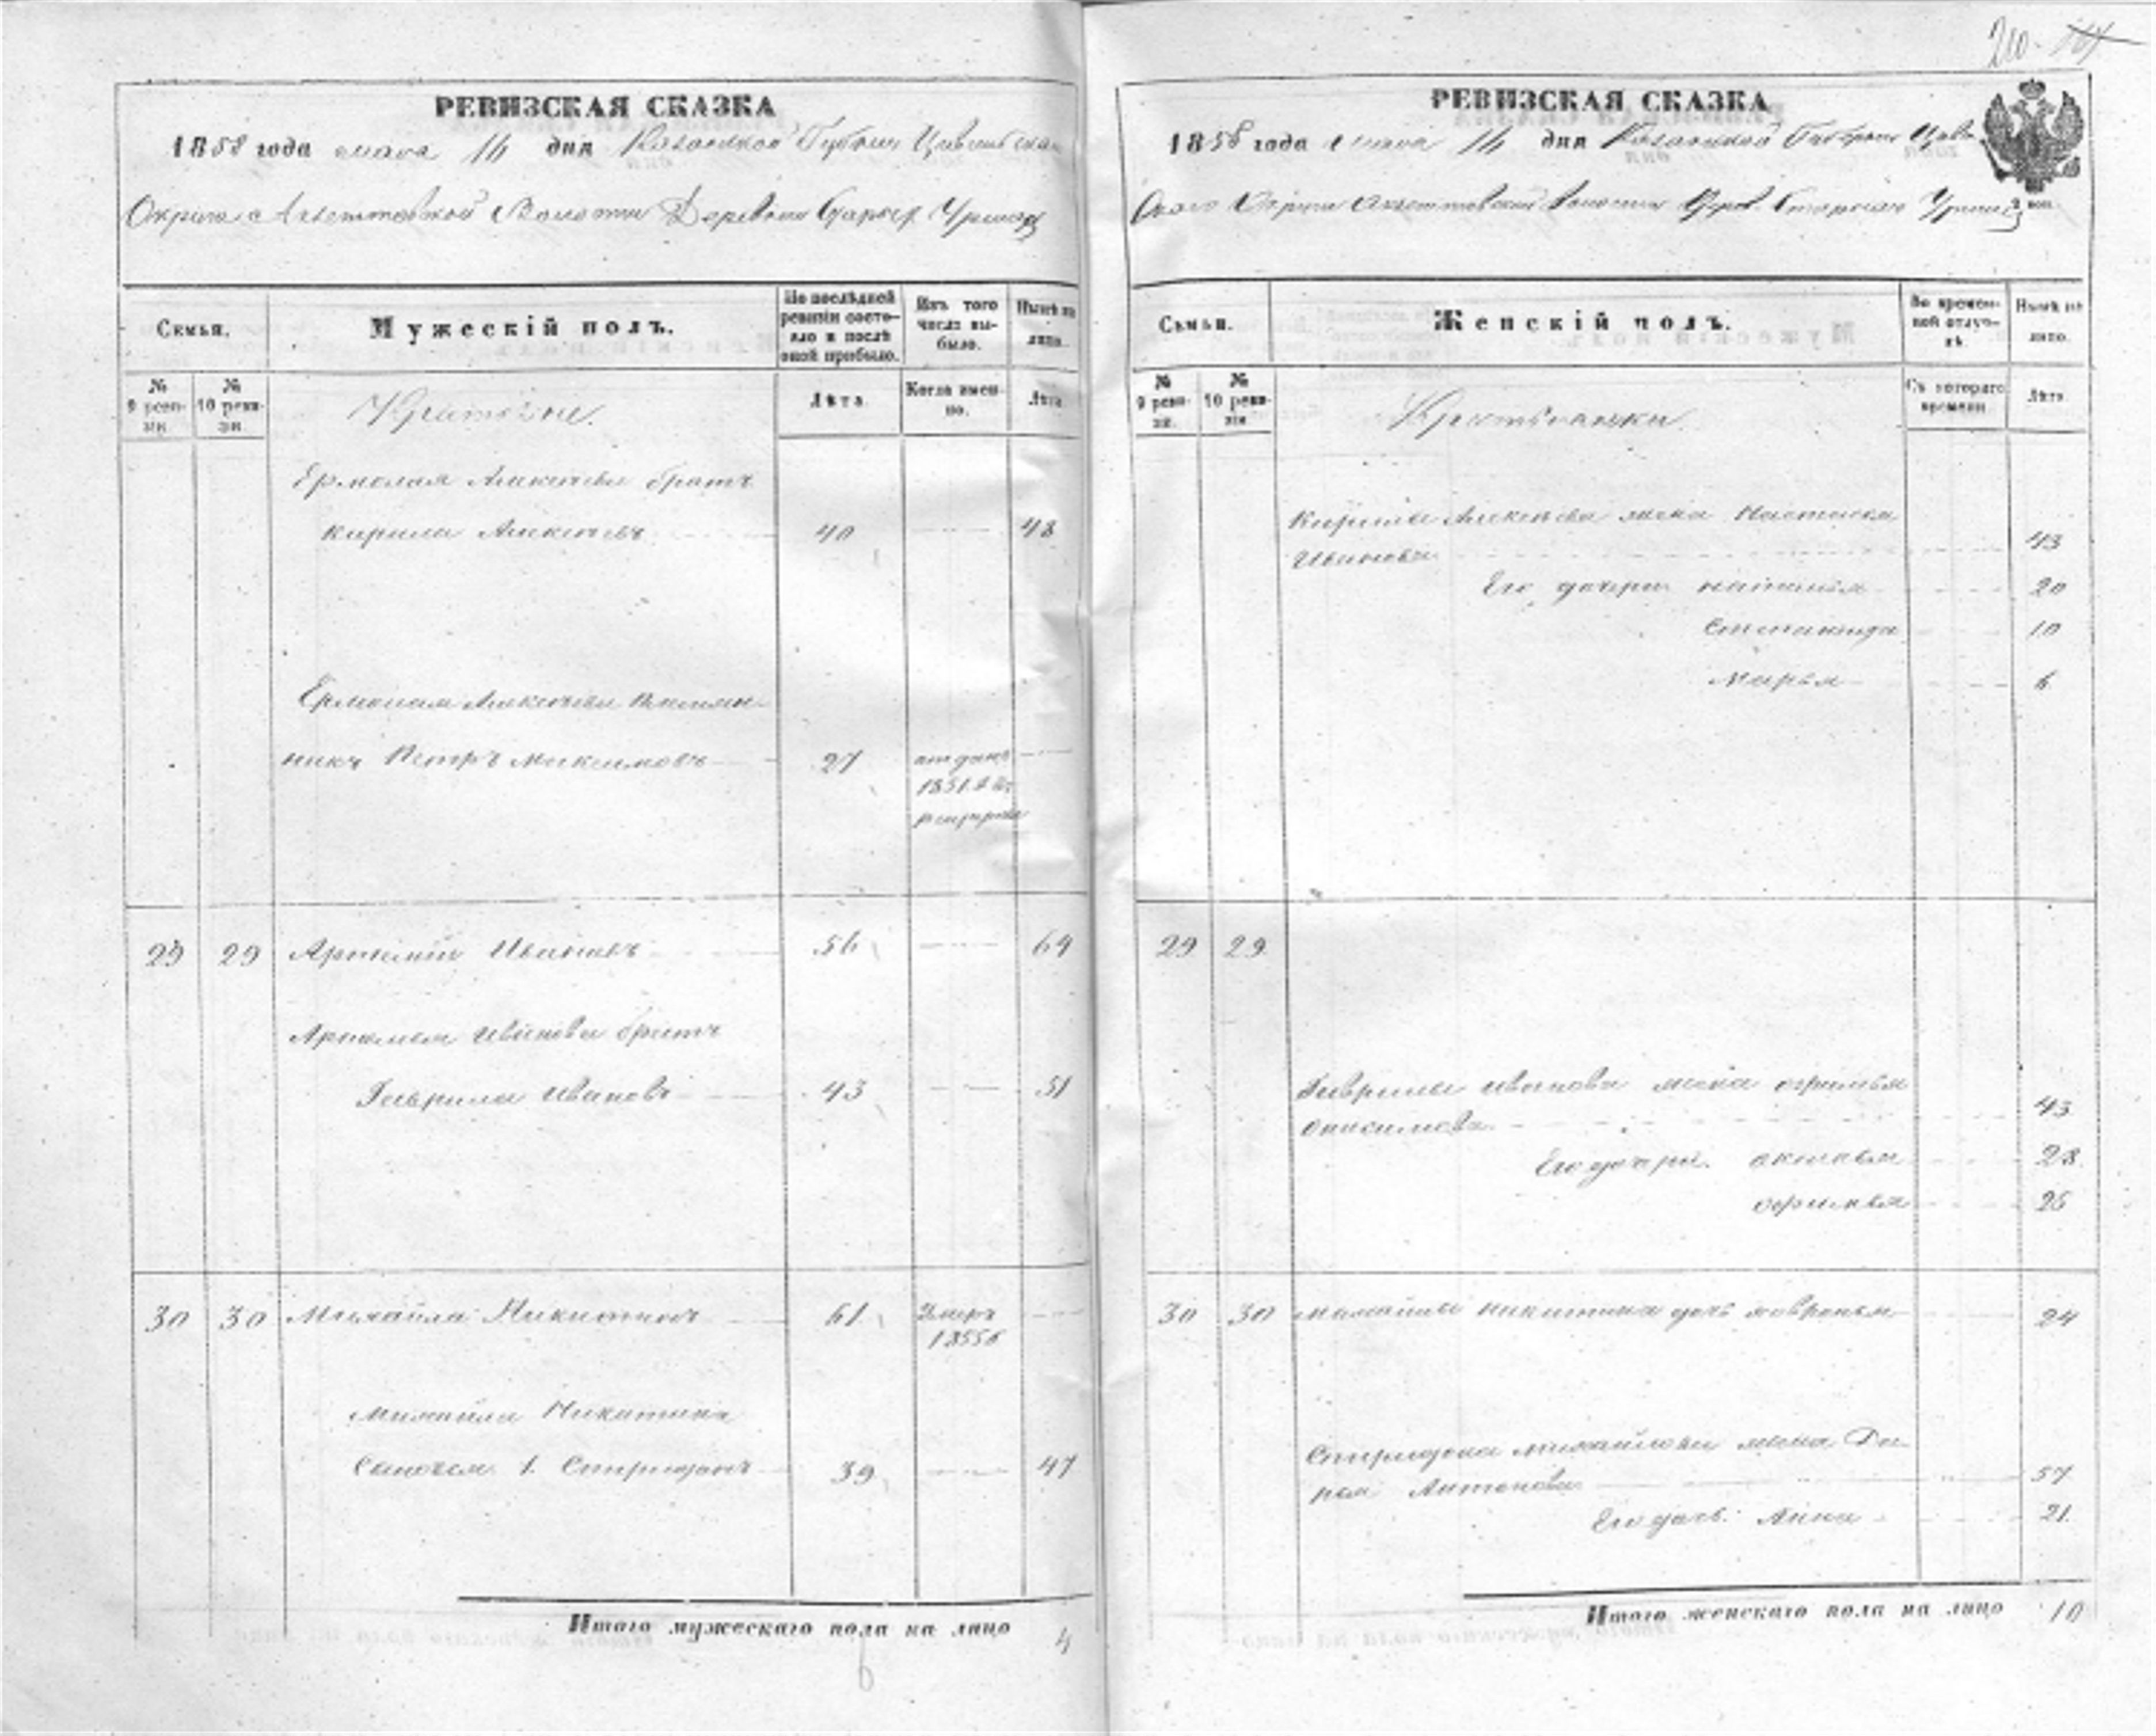 210
РЕВИЗСКАЯ СКАЗКА
1858 года мая 16 дня Казанской Губернии Цивильскаго
Округа Деревни Старых Урмар
Семьи.
Мужескій полъ.
По послѣдней ревизіи состояло и послѣ оной прибыло.
Изъ того числа выбыло.
Нынѣ на лицо.
№ 9 ревизіи.
№ 10 ревизіи.
Лѣта.
Когда именно.
Лѣта.
Ермолая Алексѣева братъ
Кирила Алексѣевъ 40 48
Ермолая Алексѣева племян-
никъ Петръ Максимовъ 27 отданъ
1851 в
рекруты
29 29 Артемій Ивановъ 56 64
Артемья Иванова братъ
Гаврила Ивановъ 43 51
30 30 Михайла Никитинъ 61 Умеръ
1855
Михайла Никитина
Сыновья 1. Спиридонъ 39 47
Итого мужескаго пола на лицо 4
РЕВИЗСКАЯ СКАЗКА
1858 года мая 16 дня Казанской Губерніи Цивиль
скаго Округа Дерев. Старыхъ Урмар
Семьи.
Женскій полъ.
Во временной отлучкѣ.
Нынѣ на лицо.
№ 9 ревизіи.
№ 10 ревизіи
Съ котораго времени.
Лѣта.
Крестьянки.
Кирилы Алексѣева жена Настасья
Иванова 43
Его дочери Наталья 20
Степанида 10
Марья 6
29 29
Гаврилы Иванова жена
Онисимова 43
Его дочери 28
25
30 30 Михайлы Никитина дочь 24
Спиридона Михайлова жена Да-
рья Антонова 57
Его дочь Анна 21
Итого женскаго пола на лицо 10